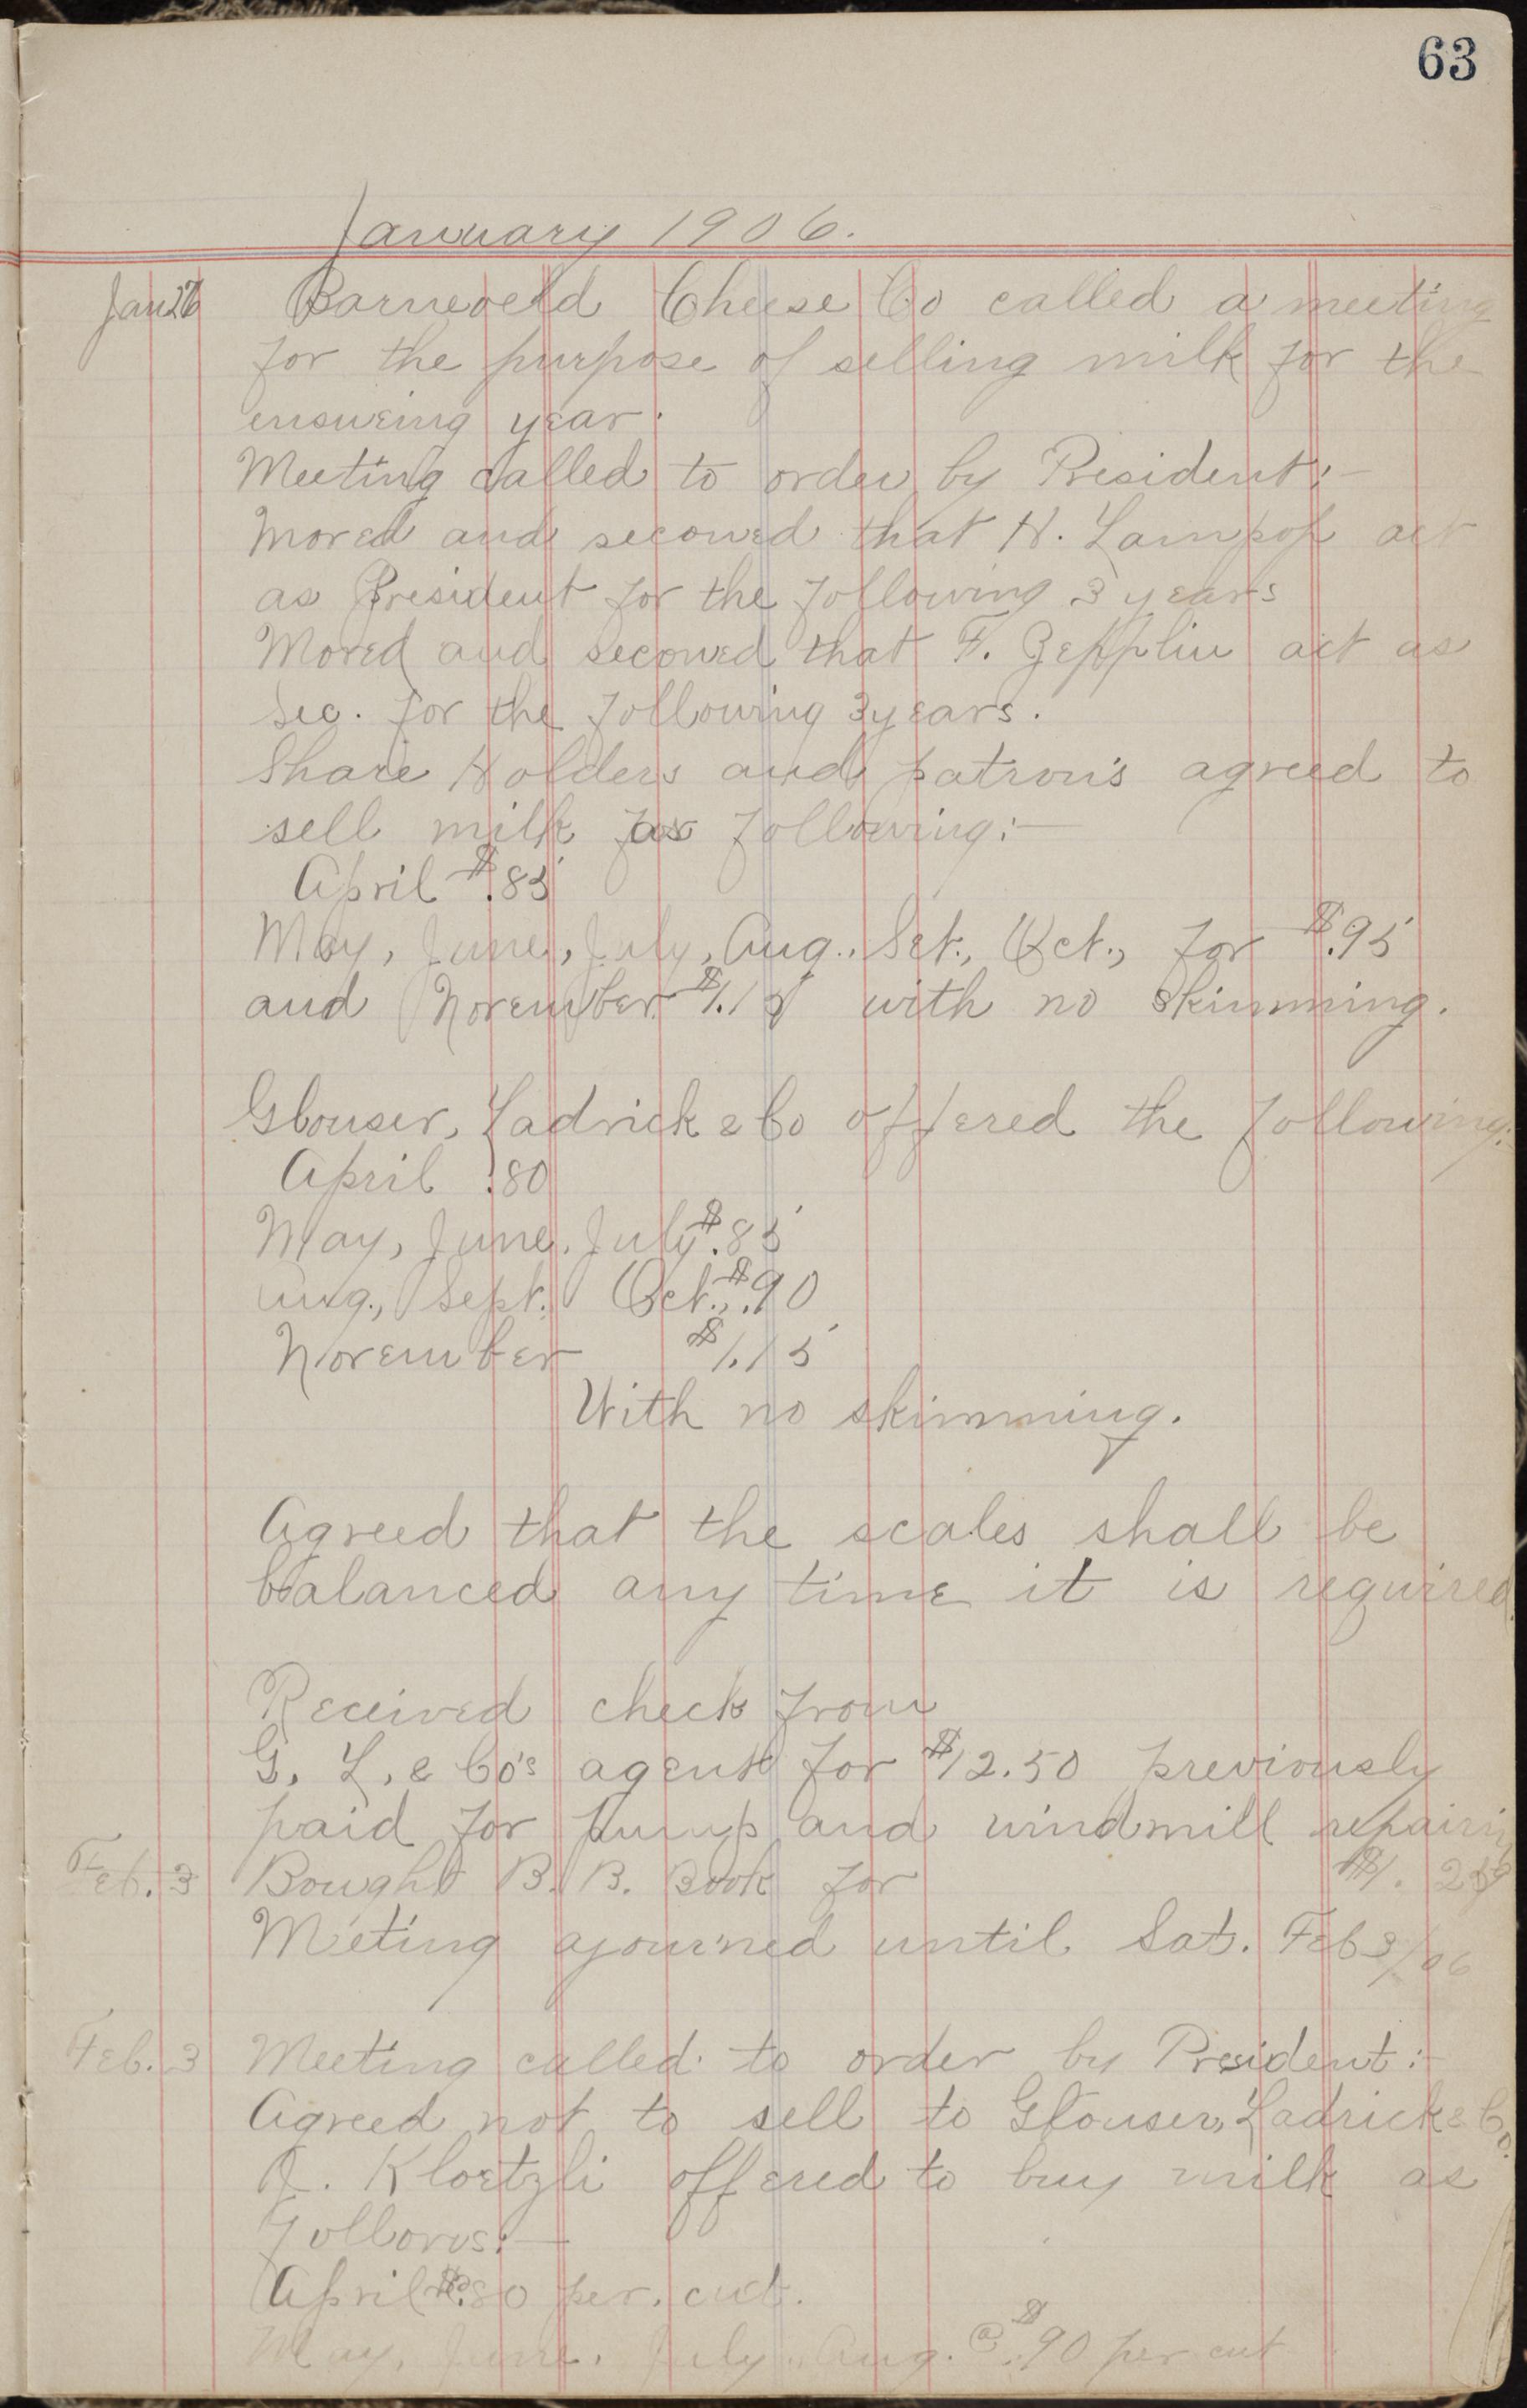 63
January 1906.
Jan 26 Barneveld Cheese Co called a meeting
for the purpose of selling milk for the
ensueing year.
Meeting called to order by President:-
Moved and seconed that H. Lampop act
as President for the following 3 years
Moved and seconed that F. Zepplin act as
Sec. for the following 3 years.
Share Holders and patron's agreed to
sell milk as following:-
April $.85
May, June, July, Aug., Set., Oct., for $.95
and November $1.15 with no skimming.
Glouser, Ladrick & Co offered the following:-
April .80
May, June, July $.85
Aug., Sept. Oct., $.90
November $1.15
With no skimming.
Agreed that the scales shall be
balanced any time it is required.
Received check from
G. L. & Co's agent for $12.50 previously
paid for pump and windmill repairing
Feb. 3 Bought B. B. Book for $1.25
Meeting ajourned until Sat. Feb 3/06
Feb. 3 Meeting called to order by President:-
Agreed not to sell to Glouser, Ladrick & Co.
Kloetzli offered to buy milk as
Follows:-
April $.80 per. cwt.
May, June, July, Aug. @ $.90 per cwt